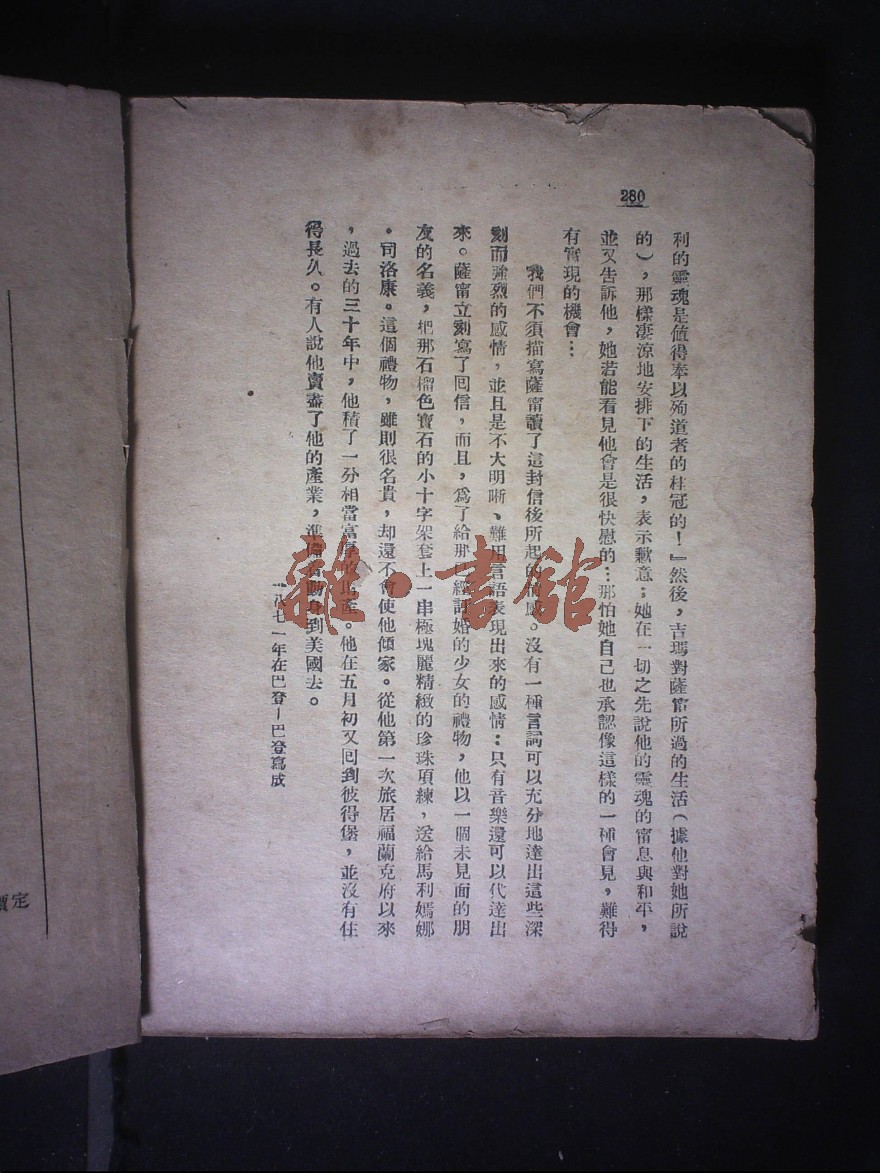 280
利的靈魂是值得奉以殉道者的桂冠的！』然後，吉瑪對薩甯所過的生活（據他對她所說
的），那樣凄涼地安排下的生活，表示歉意；她在一切之先說他的靈魂的甯息與和平，
並又告訴他，她若能看見他會是很快慰的…那怕她自己也承認像這樣的一種會見，難得
有實現的機會…
我們不須描寫薩甯讀了這封信後所起的情感。沒有一種言詞可以充分地達出這些深
刻而強烈的感情，並且是不大明晰、難用言語表現出來的感情：只有音樂還可以代達出
來。薩甯立刻寫了囘信，而且，爲了給那已經訂婚的少女的禮物，他以一個未見面的朋
友的名義，把那石榴色寶石的小十字架套上一串極瑰麗精緻的珍珠項練，送給馬利嫣娜
。司洛康。這個禮物，雖則很名貴，却還不會使他傾家。從他第一次旅居福蘭克府以來
，過去的三十年中，他積了一分相當富厚的財產。他在五月初又囘到彼得堡，並沒有住
得長久。有人說他賣盡了他的產業，準備着動身到美國去。
一八七一年在巴登－巴登寫成
定
雜·書館